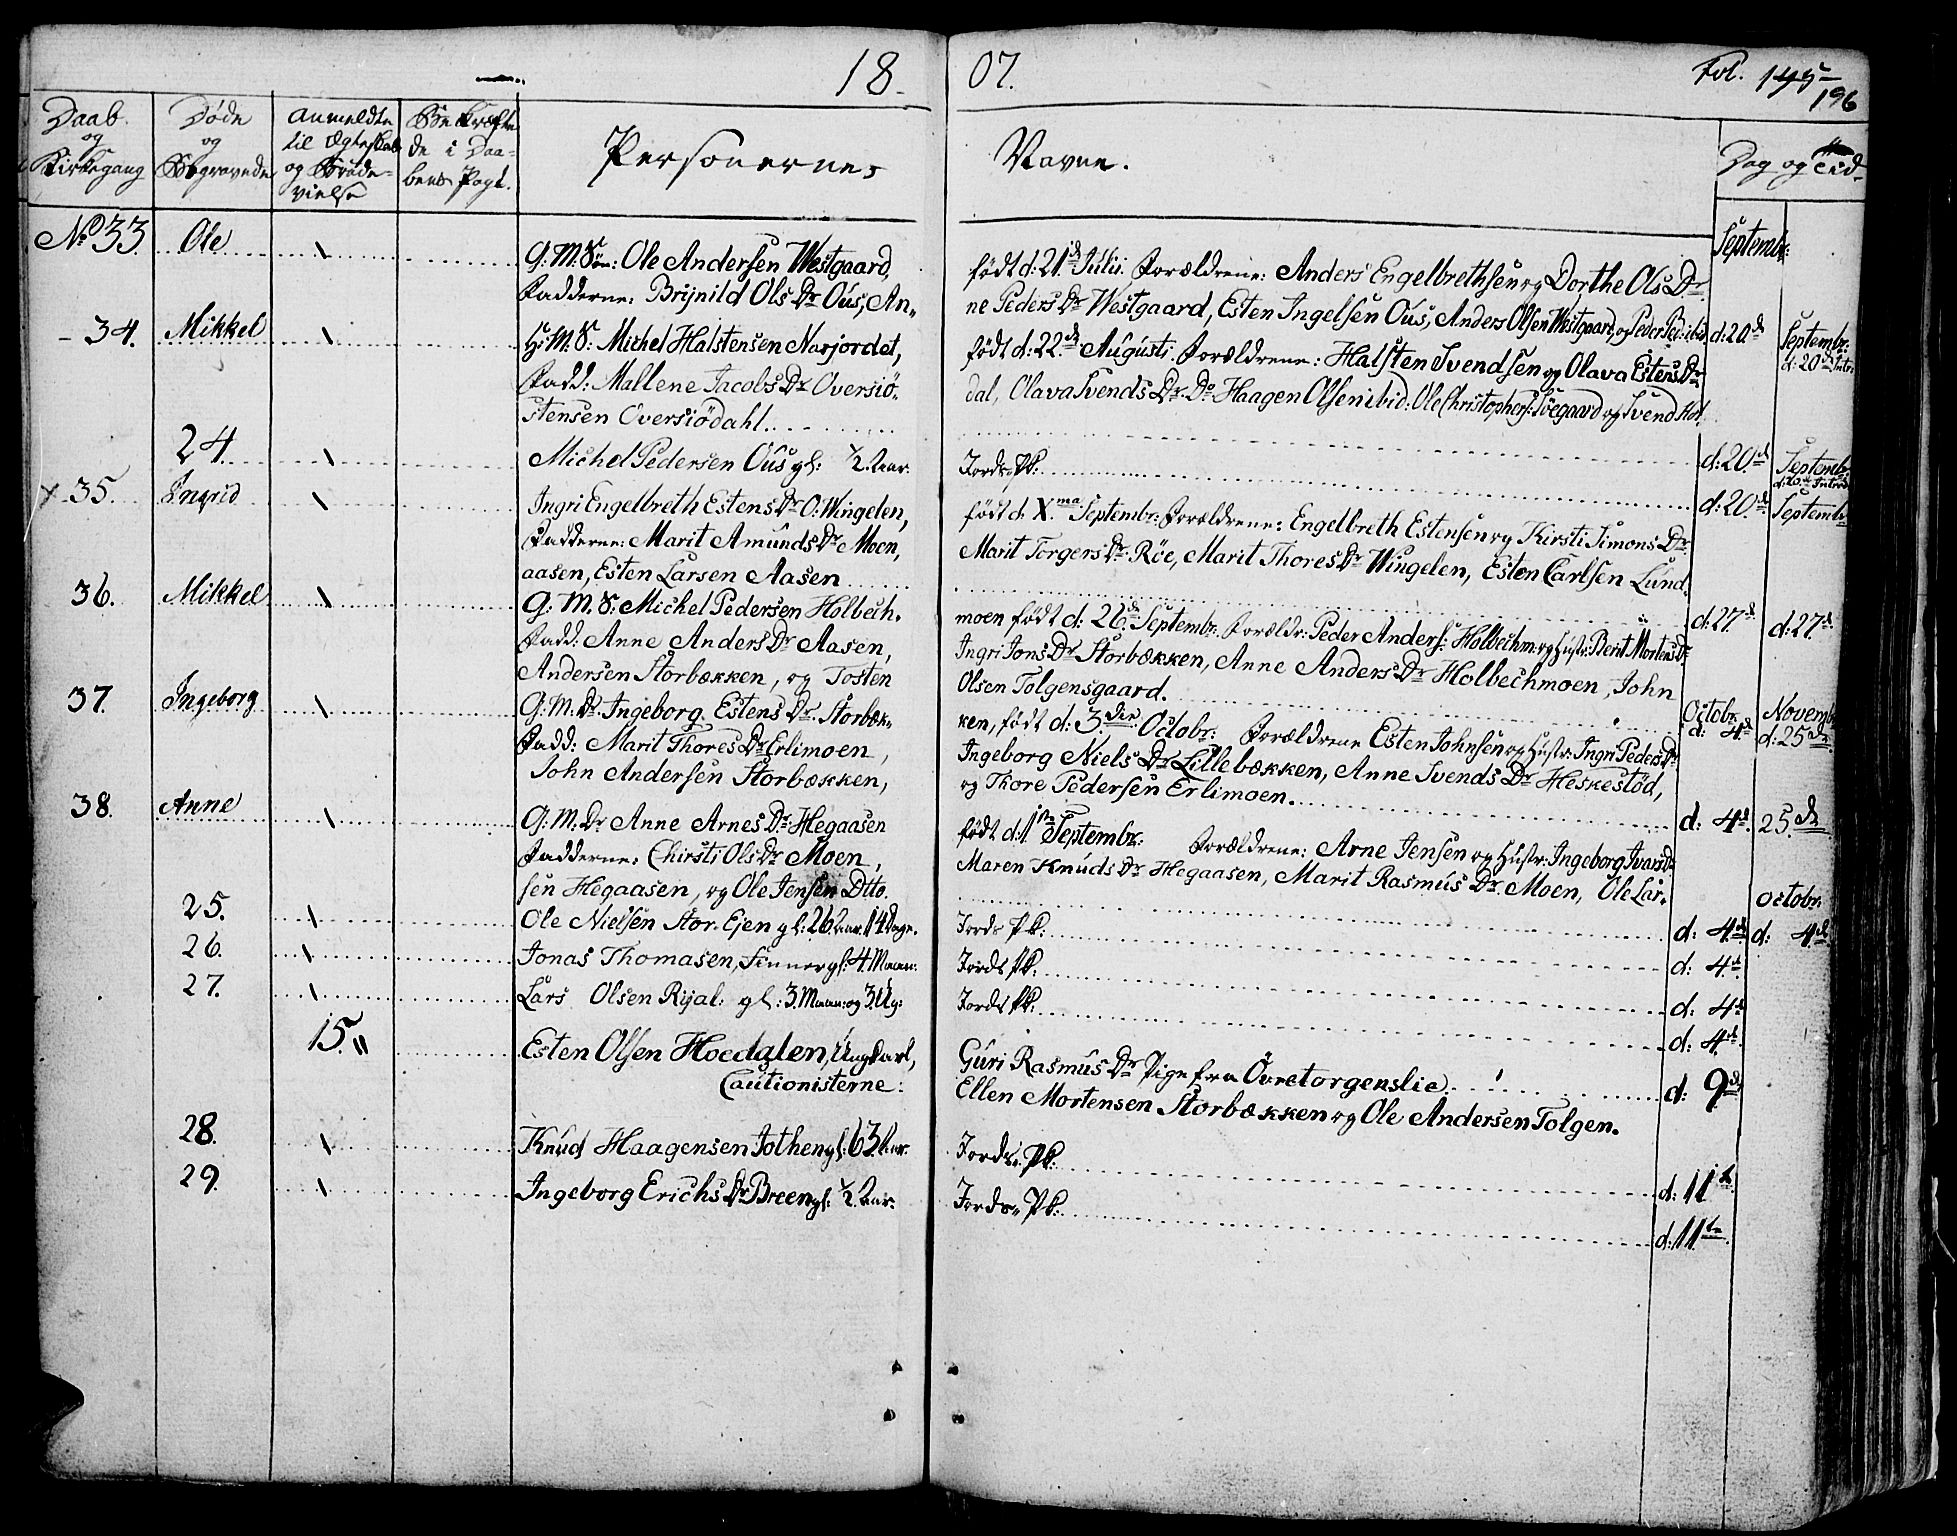 18. 07. Fol. 195
196
Daab og Kirkegang
Døde og Begravede
Anmeldte til Ægteskab og Brude-vielse
Bekræftede i Daa-bens Pagt.
Personernes Navne.
Dag og Tid
No 33. Ole G. M. Søn: Ole Andersen Westgaard, født d: 21de Julii. Forældrene: Anders Engelbrethsen og Dorthe Ols Dr. Septembr:
Fadderne: Brynild Ols Dr Ous, An- ne Peders Dr Westgaard, Esten Ingelsen Ous, Anders Olsen Westgaard, og Peder Ped: ibid d: 20de Septembr:
- 34. Mikkel H: M: S: Michel Halstensen Narjordet, født d: 22de Augusti. Forældrene: Halsten Svendsen og Olava Estens Dr d: 20de Intr:
Fadd: Mallene Jacobs Dr Oversiö- dal, Olava Svends Dr Do Haagen Olsen ibid: Ole Christophers: Söegaard og Svend Hol-
stensen Oversiödahl.
24. Michel Pedersen Ous gl: 1/2 Aar. Jords Pk: d: 20de Septembr:
d: 20de Introd:
35. Ingrid Ingri Engelbreth Estens Dr O: Wingelen, født d. Xma Septembr: Forældrene: Engelbreth Estensen og Kirsti Simons Dr d: 20de Septembr
Fadderne: Marit Amunds Dr Moen, Marit Torgers Dr Röe, Marit Thores Dr Wingelen, Esten Carlsen Lund-
aasen, Esten Larsen Aasen
36. Mikkel G: M. S: Michel Pedersen Holbech- moen født d: 26de Septembr. Forældr: Peder Anders: Holbechm: og Hustr: Berit Mortens Dr d: 27de d: 27de
Fadd: Anne Anders Dr Aasen, Ingri Jons Dr Storbækken, Anne Anders Dr Holbechmoen, John
Andersen Storbækken, og Tosten Olsen Tolgensgaard.
37. Ingeborg G: M. Dr Ingeborg Estens Dr Storbæk- ken, født d: 3die Octobr: Forældrene Esten Johnsen og Hustr: Ingri Peders Dr Octobr d: 4de Novembr d: 25de
Fadd: Marit Thores Dr Erlimoen, Ingeborg Niels Dr Lillebækken, Anne Svends Dr Heskestöd,
John Andersen Storbækken, og Thore Pedersen Erlimoen.
38. Anne G: M. Dr Anne Arnes Dr Hegaasen født d: 1ste Septembr: Forældrene: Arne Jensen og Hustr: Ingeborg Ivars Dr d: 4de 25de
Fadderne: Chirsti Ols Dr Moen, Maren Knuds Dr Hegaasen, Marit Rasmus Dr Moen, Ole Lar-
sen Hegaasen, og Ole Jensen Dtto.
25. Ole Nielsen Stor-Ejen gl: 26 Aar 14 Dage. Jords Pk: d: 4de Octobr: d: 4de
26. Jonas Thomasen, Finner gl: 4. Maan: Jords Pk: d: 4de
27. Lars Olsen Ryal: gl: 3. Maan: og 3 Ug: Jords Pk: d: 4de
d: 4de
15. Esten Olsen Hoedalen, Ung Karl, Guri Rasmus Dr Pige fra Övretorgenslie d: 9de
Cautionisterne: Ellen Mortensen Storbækken og Ole Andersen Tolgen.
28. Knud Haagensen Jothen gl: 63 Aar. Jords. Pk: d: 11te
29. Ingeborg Erichs Dr Breen gl: 1/2 Aar. Jords. Pk: d: 11te